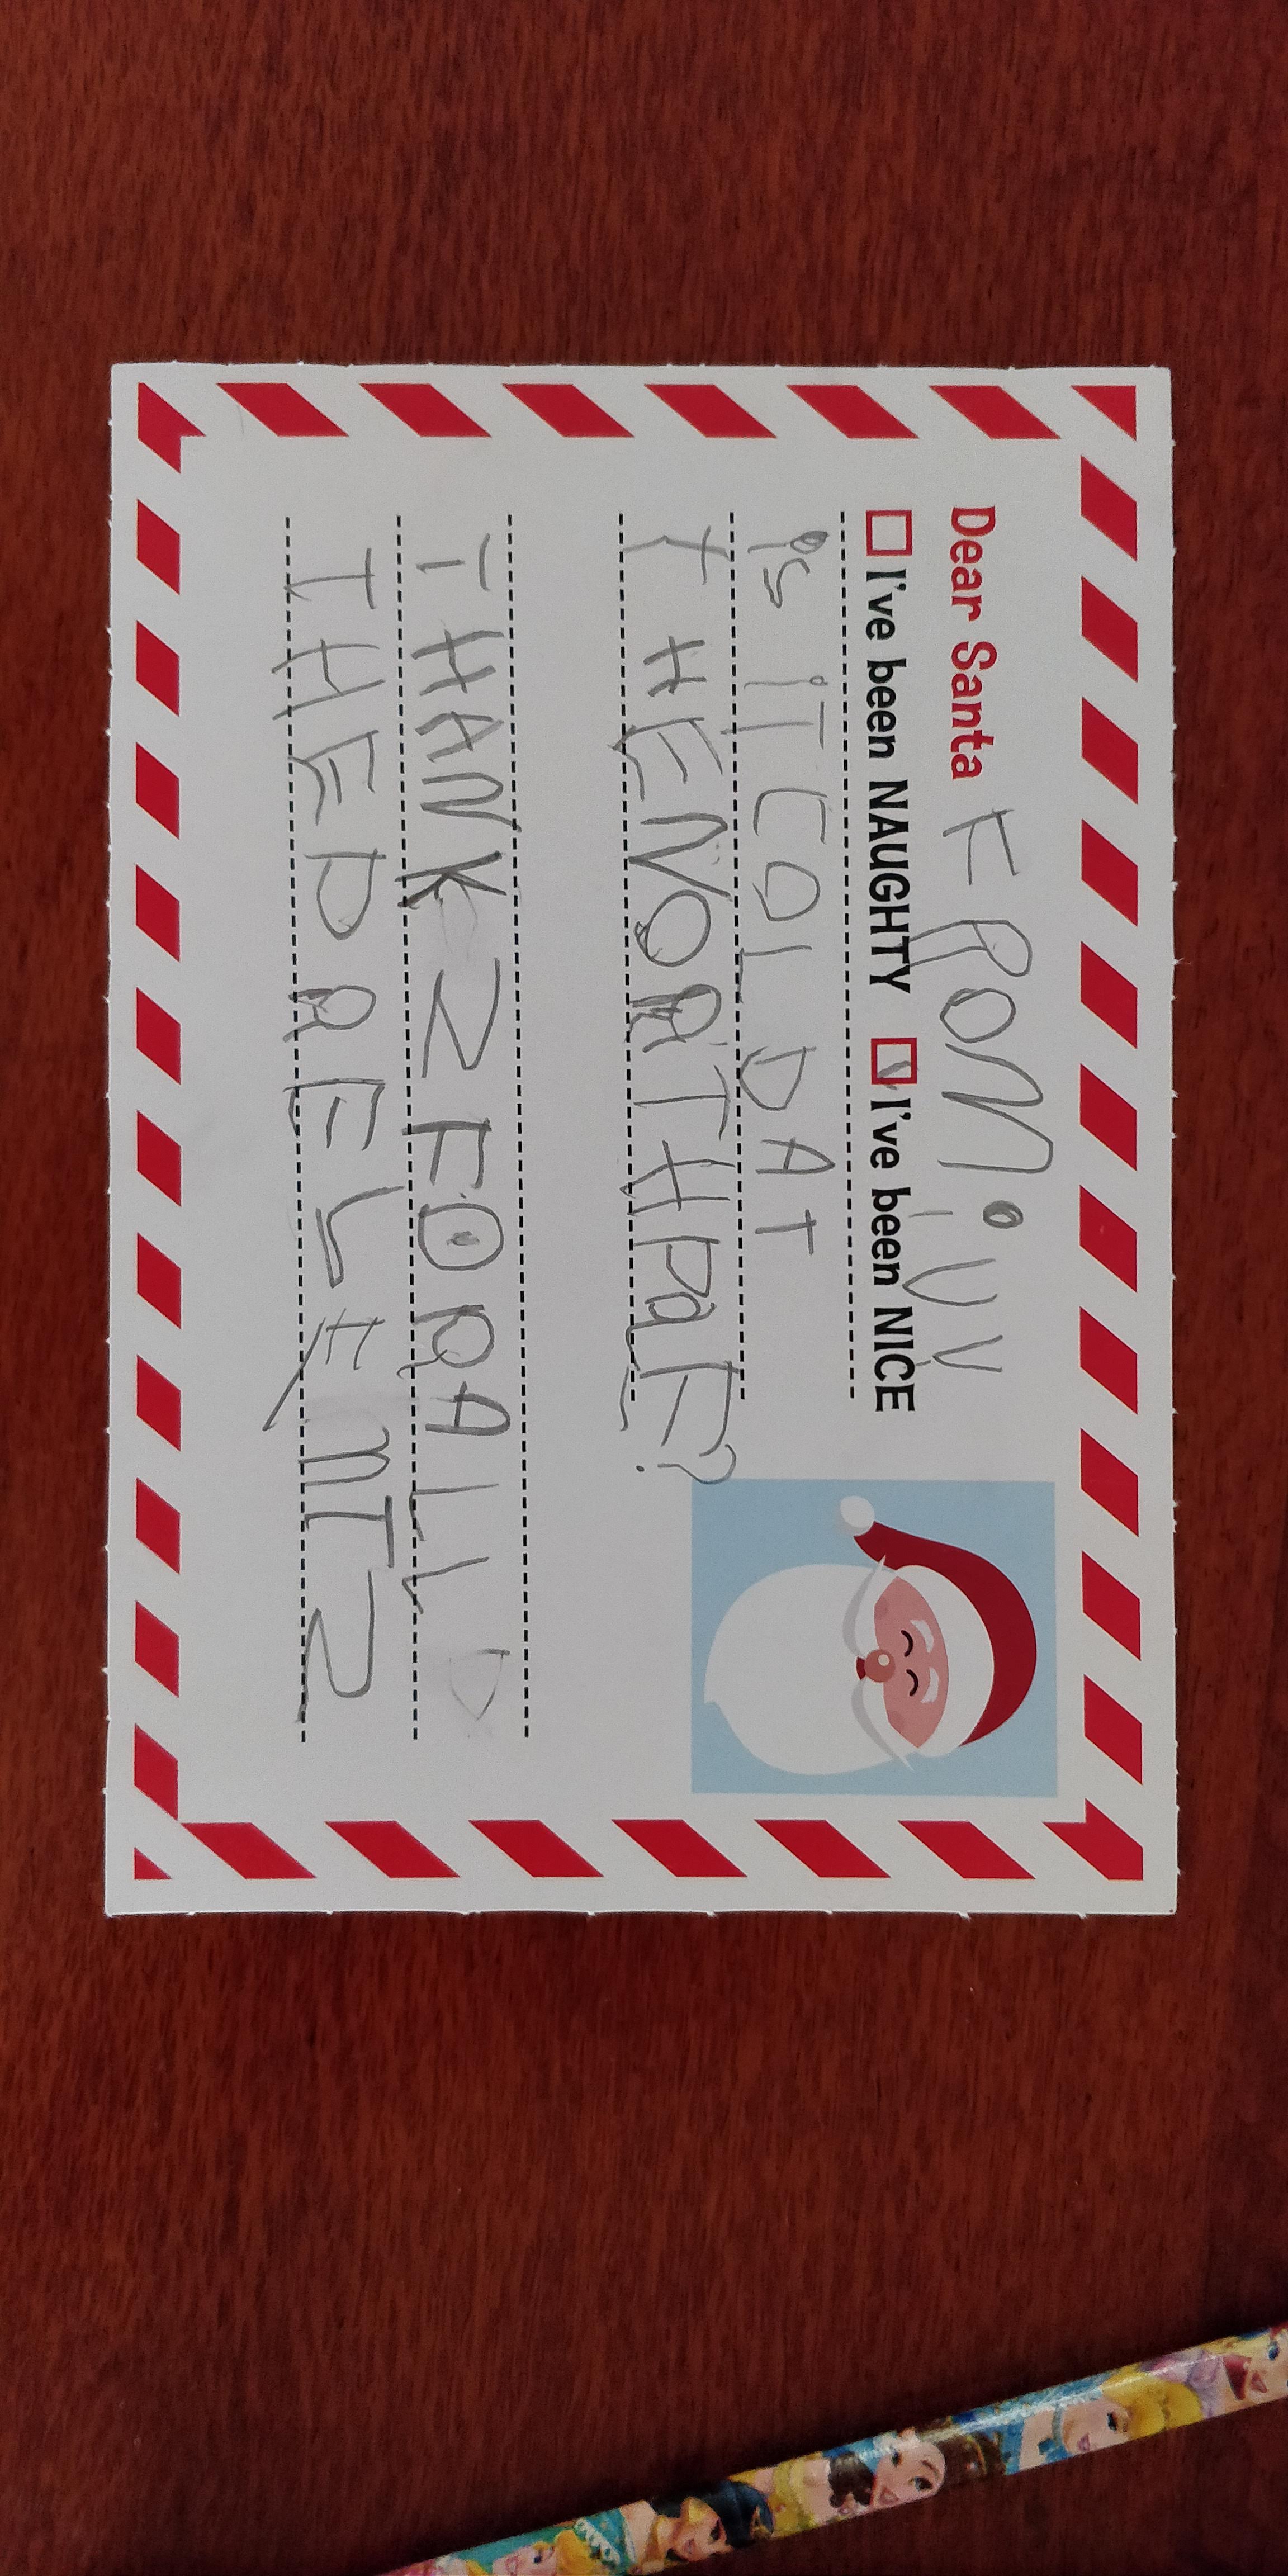 Dear Santa FROM ivv
I've been NAUGHTY I've been NICE
is iT COLD AT
THE NORTH PaLE?
THANKZ FOR ALL
THE PRELENTZ